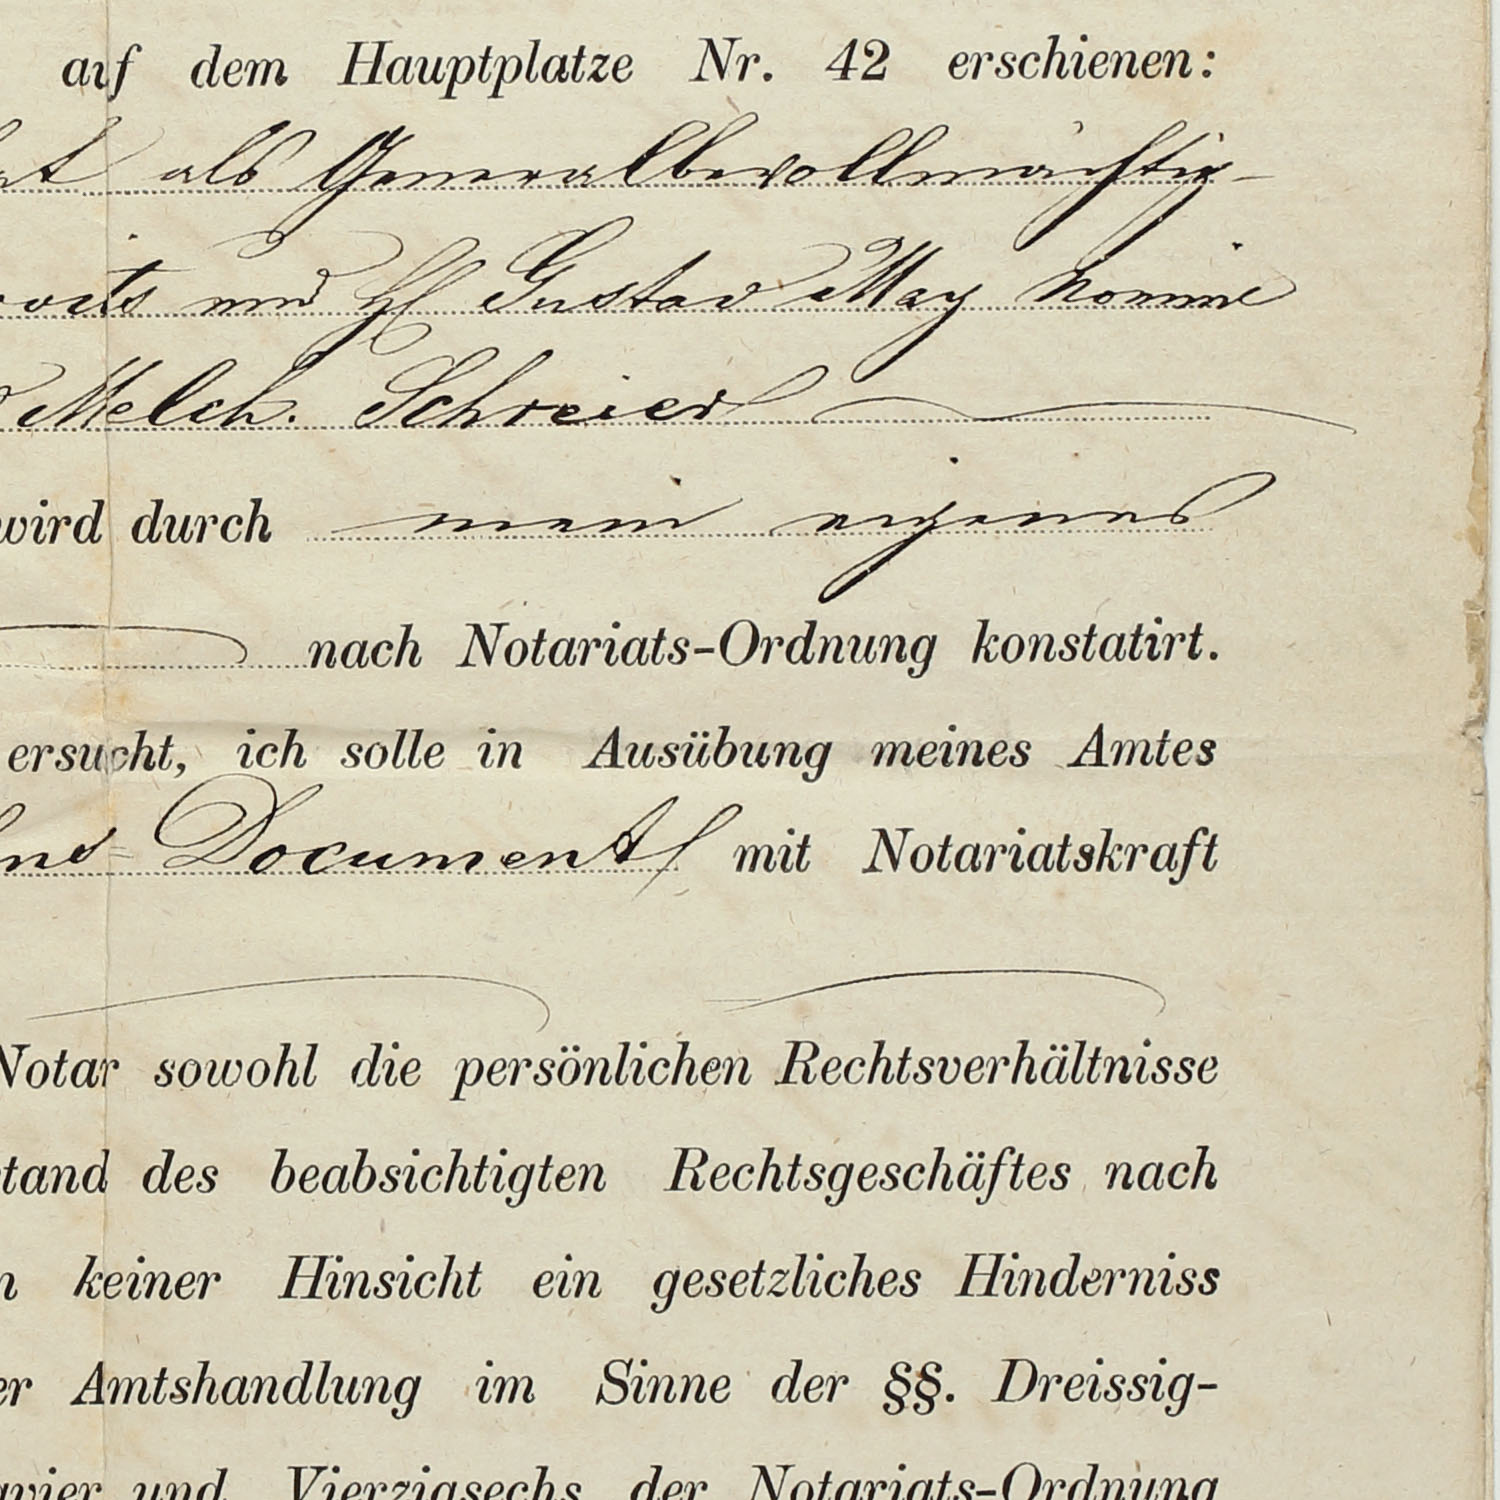 auf dem Hauptplatze Nr. 42 erschienen:
als Generalbevollmächtig-
und H Gustav May
Melch. Schreier
wird durch mein eigenes
nach Notariats-Ordnung konstatirt.
ersucht, ich solle in Ausübung meines Amtes
Document mit Notariatskraft
Notar sowohl die persönlichen Rechtsverhältnisse
tand des beabsichtigten Rechtsgeschäftes nach
n keiner Hinsicht ein gesetzliches Hinderniss
er Amtshandlung im Sinne der §§. Dreissig-
vier und Vierzigsechs der Notariats-Ordnung